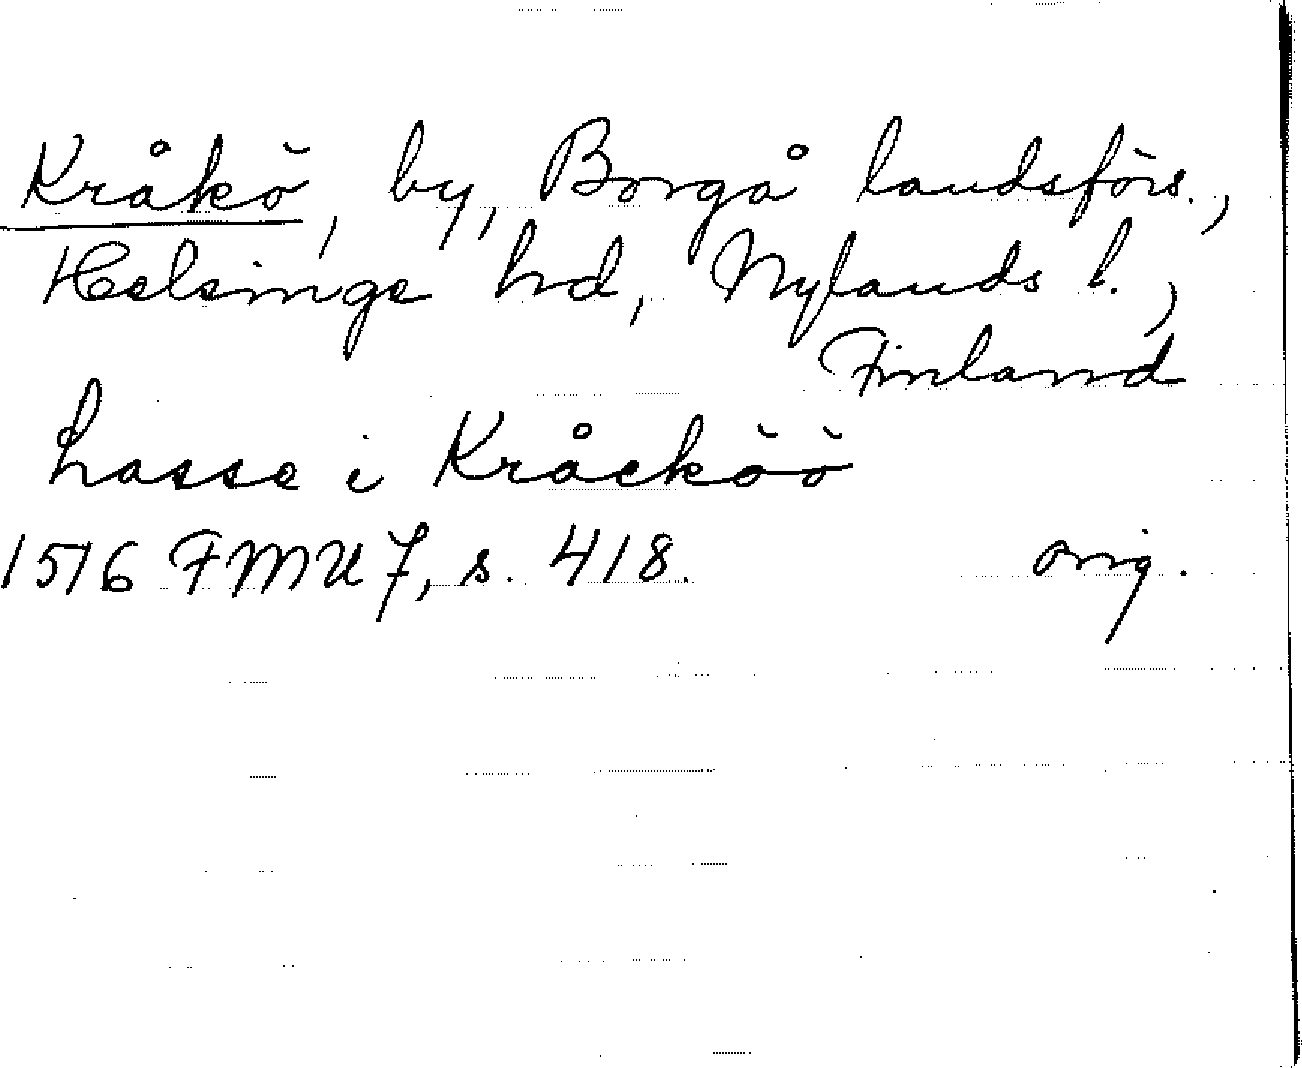 Kråkö, by, Borgå landsförs.,
Helsinge hd, Nylands l.,
Finland
Lasse i Kråcköö
1516 FMU 7, s. 418. orig.